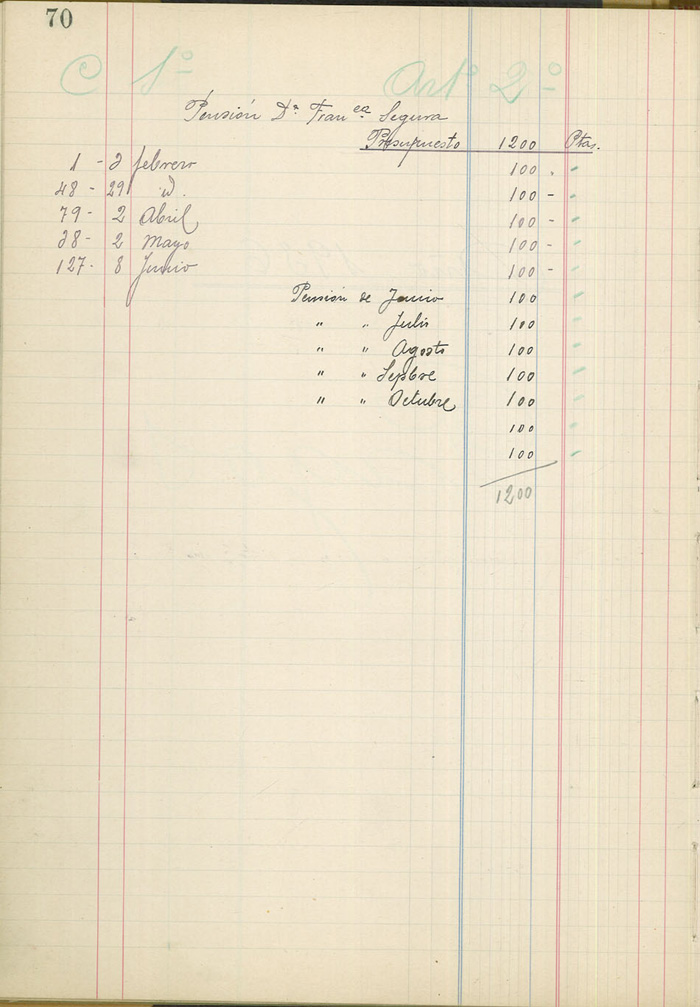 70
C 1º Artº 2º
Pensión Dª Franᶜᵃ Segura
Presupuesto 1200 Ptas.
1 - 2 febrero 100 . "
48 - 29 id. 100 - "
79 - 2 Abril 100 - "
38 - 2 Mayo 100 - "
127 - 8 Junio 100 - "
Pensión de Junio 100 "
" " Julio 100 "
" " Agosto 100 "
" " Sepbre 100 "
" " Octubre 100 "
100 "
100 "
1200